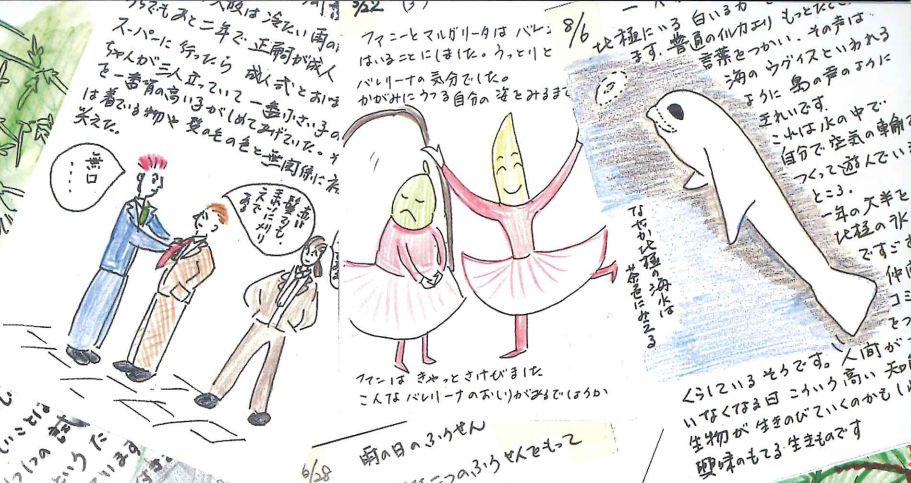 阪は冷たい雨の
でもあと二年で、正嗣が成人
スーパーに行ったら 成人式とおぼ
ちゃんが三人立っていて 一番小さい子の
を一番背の高い子がしめてあげていた。
は着ている物や髪のその色と無関係に
笑えた。
無口
・・・・
3/22
ファニーとマルガリータは バレ
はいることにしました。うっとりと
バレリーナの気分でした。
かがみにうつる自分の姿をみるまで
ファンは きゃっとさけびました。
こんなバレリーナのおしりがあるでしょうか
8/6
北極にいる白いイルカ
ます。普通のイルカより もっと
言葉をつかい、その声は
海のウグイスといわれる
ように 鳥の声のように
きれいです。
これは水の中で
自分で空気の車輪を
つくって遊んでいる
ところ。
一年の大半を
北極の氷
ですごす
仲間
コミ
をつ
なぜか北極の海水は
茶色にみえる
くらしているそうです。人間が
いなくなる日 こういう高い 知能
生物が 生きのびていくのかもし
興味のもてる生きものです
6/28
雨の日のふうせん
二つのふうせんをもって